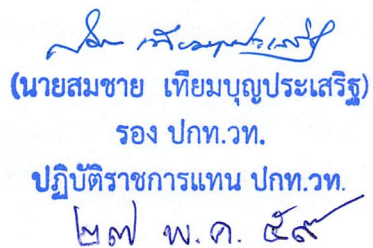 (นายสมชาย เทียมบุญประเสริฐ)
รอง ปกท.วท.
ปฏิบัติราชการแทน ปกท.วท.
๒๗ พ.ค. ๕๙